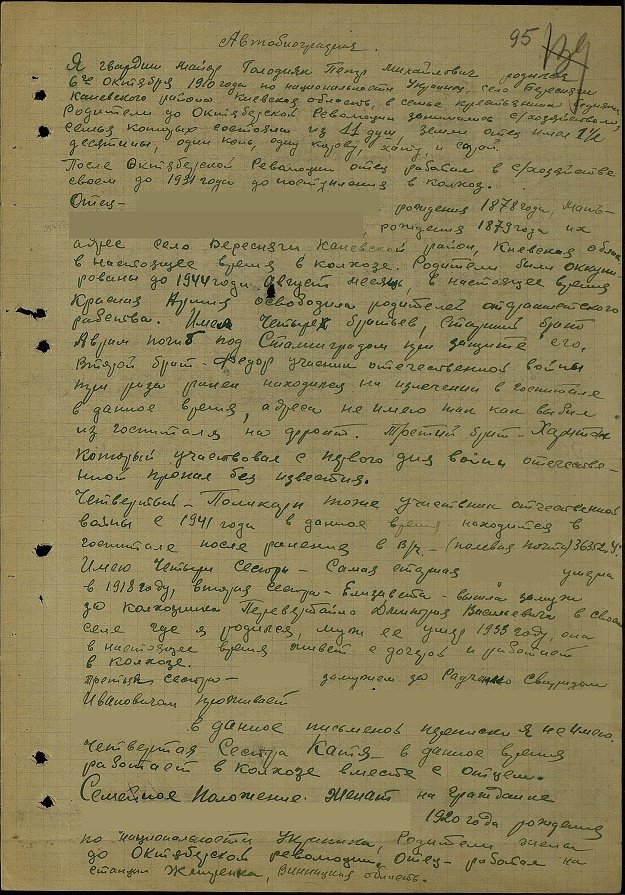 Автобиография.
95
Я гвардии Майор Голодняк Петр Михайлович родился
6го Октября 1910 года по национальности Украинец, село Бересняги
Каневского района Киевская область, в семье крестьянина
Родители до Октябрьской Революции занимались с/хозяйством,
семья которых состояла из 11 душ, земли отец имел 1/2
десятины, один конь, одну корову, хату и сарай.
После Октябрьской Революции отец работал в с/хозяйстве
своем до 1931 года до поступления в колхоз.
Отец- рождения 1878 года, мать-
рождения 1879 года их
адрес село Бересняги Каневской район, Киевская облас
в настоящее время в колхозе. Родители были оккупи-
рованы до 1944 года Август месяц, в настоящее время
Красная Армия освободила родителей от фашистского
рабства. Имел Четырех братьев, старший брат
Аврам погиб под Сталинградом при защите его.
Второй брат - Федор участник отечественной войны
три раза ранен находился на излечении в госпитале
в данное время, адреса не имею так как выбыл
из госпиталя на фронт. Третий брат - Харитон
который участвовал с первого дня войны отечестве-
нной пропал без известия.
Четвертый - Поликарп тоже участник отечественной
войны с 1941 года в данное время находится в
госпитале после ранения в В/ч - (полевая почта) 36352
Имею Четыри Сестры - Самая старшая умерла
в 1918 году, вторая сестра - Елизавета - вышла замуж
за колхозника Перевертайло Дмитрия Васильевича в своем
селе где я родился, муж ее умер 1933 году, она
в настоящее время живет с дочерой и работает
в колхозе.
третья сестра - замужем за Радченко Свиридом
Ивановичом проживает
в данное письменой переписки я не имею.
Четвертая Сестра Катя в данное время
работает в колхозе вместе с отцем.
Семейное Положение. Женат на гражданке
1920 года рождения
по национальности Украинка, Родители жены
до Октябрьской революции, Отец - работал на
станции Жмеренка, Винницкая область.